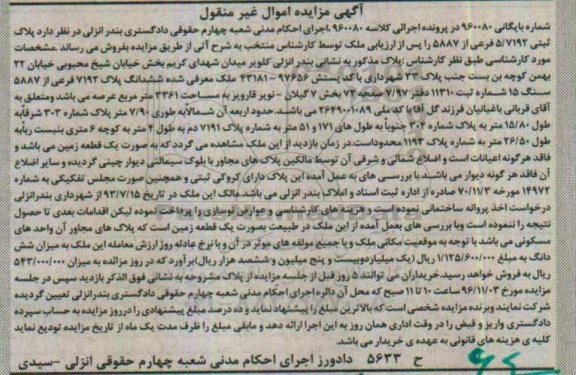 آگهی مزایده اموال غیر منقول
شماره بایگانی ۹۶۰۰۸۰ در پرونده اجرائی کلاسه ۹۶۰۰۸۰ .اجرای احکام مدنی شعبه چهارم حقوقی دادگستری بندر انزلی در نظر دارد پلاک
ثبتی ۵/۷۱۹۲ فرعی از ۵۸۸۷ را پس از ارزیابی ملک توسط کارشناس منتخب به شرح آتی از طریق مزایده بفروش می رساند .مشخصات
مورد کارشناسی طبق نظر کارشناس :پلاک مذکور به نشانی بندر انزلی کلویر میدان شهدای کریم بخش خیابان شیخ محبوبی خیابان ۲۲
بهمن کوچه بن بست جنب پلاک ۳۳ شهرداری با کد پستی ۹۷۶۵۶ - ۴۳۱۸۱ ملک معرفی شده ششدانگ پلاک ۷۱۹۲ فرعی از ۵۸۸۷
سنگ ۱۵ شماره ثبت ۱۱۳۱۰ دفتر ۷/۹۷ صفحه ۷۳ بخش ۷ گیلان - نویر قارویر به مساحت ۳۳۶۱ متر مربع عرصه می باشد ومتعلق به
آقای قربانی باغبانیان فرزند گل آقا با کد ملی ۲۶۴۹۰۰۱۰۸۹ می باشد.حدود اربعه آن شمالاً به طوری ۷/۹۰ متر پلاک شماره ۳۰۳ شرقاً به
طول ۱۵/۸۰ متر به پلاک شماره ۳۰۴ جنوباً به طول های ۱۷۱ و ۵۱ متر به شماره پلاک ۷۱۹۱ دم به طول ۴ متر به کوچه ۶ متری بنبست رباً به
طول ۲۶/۵۰ متر به شماره پلاک ۱۱۹۳ محدوداست.در زمان بازدید از این ملک مشاهده می گردد که به صورت یک قطعه زمین می باشد و
فاقد هرگونه اعیانات است و اضلاع شمالی و شرقی آن توسط مالکین پلاک های مجاور با بلوک سیمانی دیوار چینی گردیده و سایر اضلاع
آن فاقد هر گونه دیوار می باشد.با بررسی های به عمل آمده این پلاک دارای کروکی ثبتی و همچنین صورت مجلس تفکیکی به شماره
۱۴۹۷۲ مورخ ۷۰/۱۱/۳ صادره از اداره ثبت اسناد و املاک بندر انزلی می باشد.مالک این ملک در تاریخ ۹۳/۷/۱۵ از شهرداری بندرانزلی
درخواست اخذ پروانه ساختمانی نموده است و هزینه های کارشناسی و عوارض نوسازی را پرداخت نموده لیکن اقدامات بعدی تا حصول
نتیجه را ننموده است وبا بررسی های بعمل آمده از این ملک در طبیعت بصورت یک قطعه زمین است که پلاک های مجاور آن واحد های
مسکونی می باشد با توجه به موقعیت مکانی ملک و با جمیع مولفه های موثر در آن و با نرخ عادله روز ارزش معامله این ملک به میزان شش
دانگ به مبلغ ۱/۱۲۵/۶۰۰/۰۰۰ ریال (یک میلیاردوبیست و پنج میلیون و ششصد هزار ریال)برآورد که در روز مزایده به میزان ۵۴۳/۰۰۰/۰۰۰
ریال به فروش خواهد رسید.خریداران می توانند ۵ روز قبل از جلسه مزایده از پلاک مشروحه به نشانی فوق الذکر بازدید سپس در جلسه
مزایده مورخ ۹۶/۱۱/۰۳ ساعت ۱۰ تا ۱۱ صبح که محل آن دائره اجرای احکام مدنی شعبه چهارم حقوقی دادگستری بندرانزلی تعیین گردیده
شرکت نمایند وبرنده مزایده شخصی است که بالاترین مبلغ را پیشنهاد نماید و ده درصد مبلغ پیشنهادی را درروز مزایده به حساب سپرده
دادگستری واریز و قبض را در وقت اداری همان روز به این اجرا ارائه دهد و مابقی مبلغ را ظرف مدت یک ماه از تاریخ مزایده تودیع نماید
کلیه ی هزینه های قانونی به عهده ی خریدار می باشد.
ح ۵۶۳۳ دادورز اجرای احکام مدنی شعبه چهارم حقوقی انزلی -سیدی